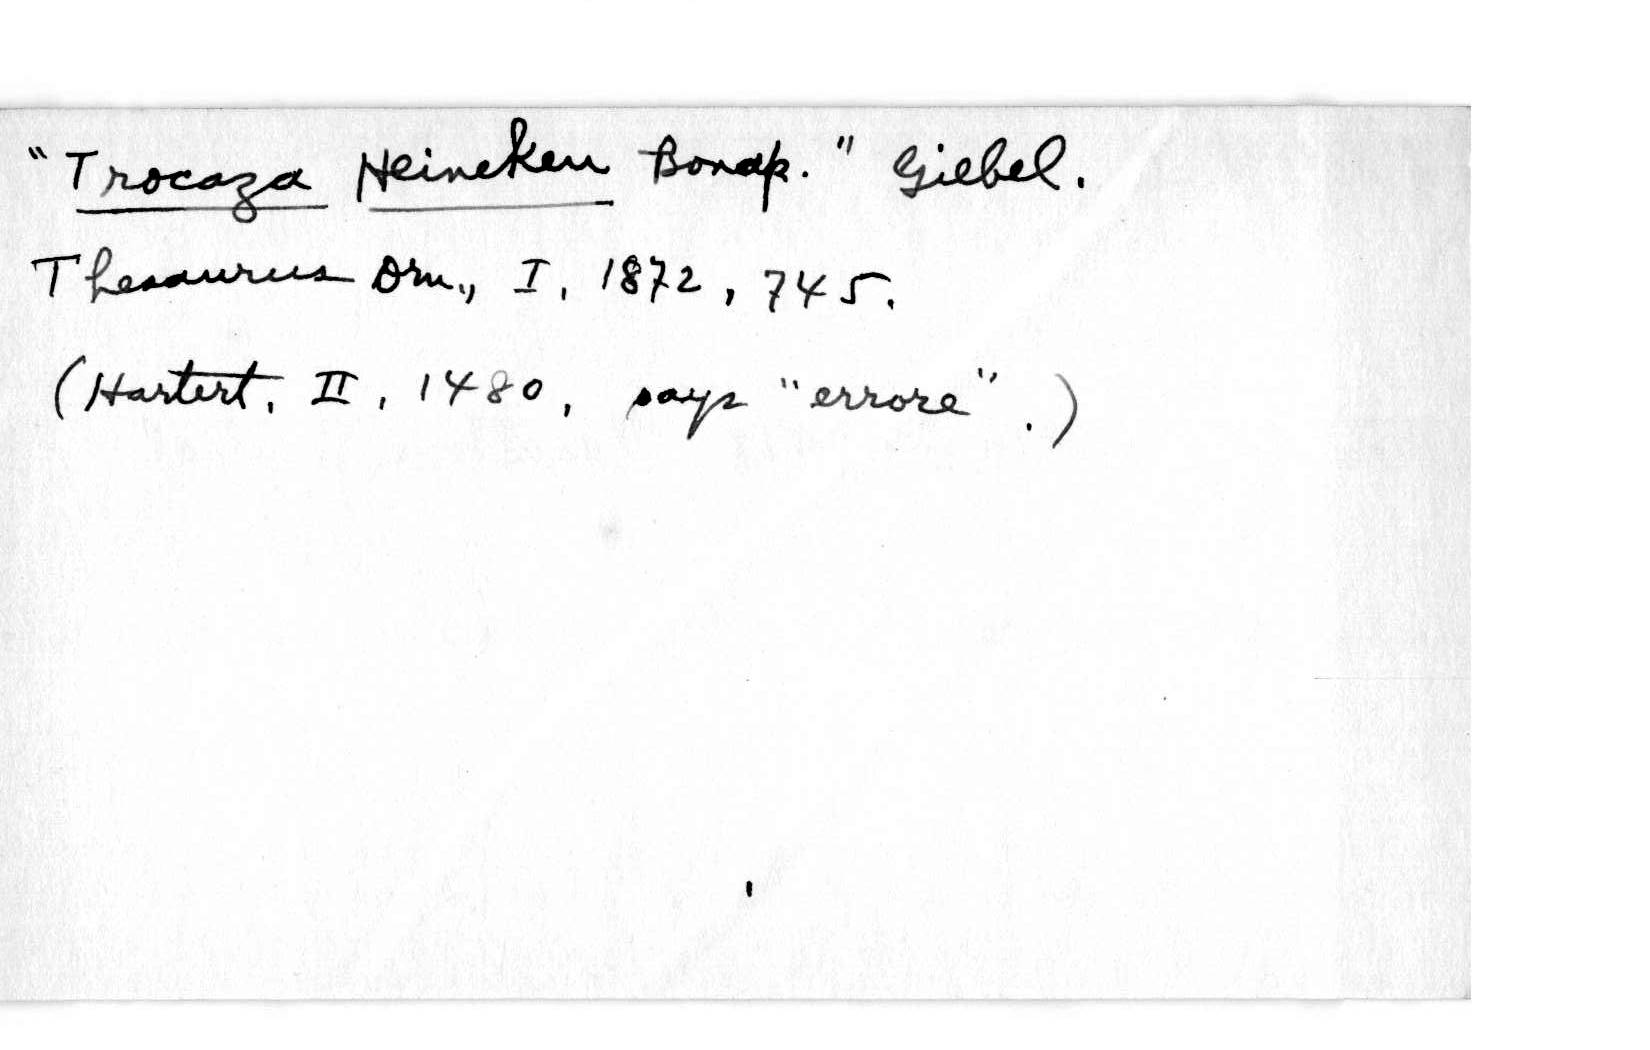 "Trocaza Heineken Bonap." Giebel.
Thesaurus Orn., I, 1872, 745.
(Hartert, II, 1480, says "errore".)